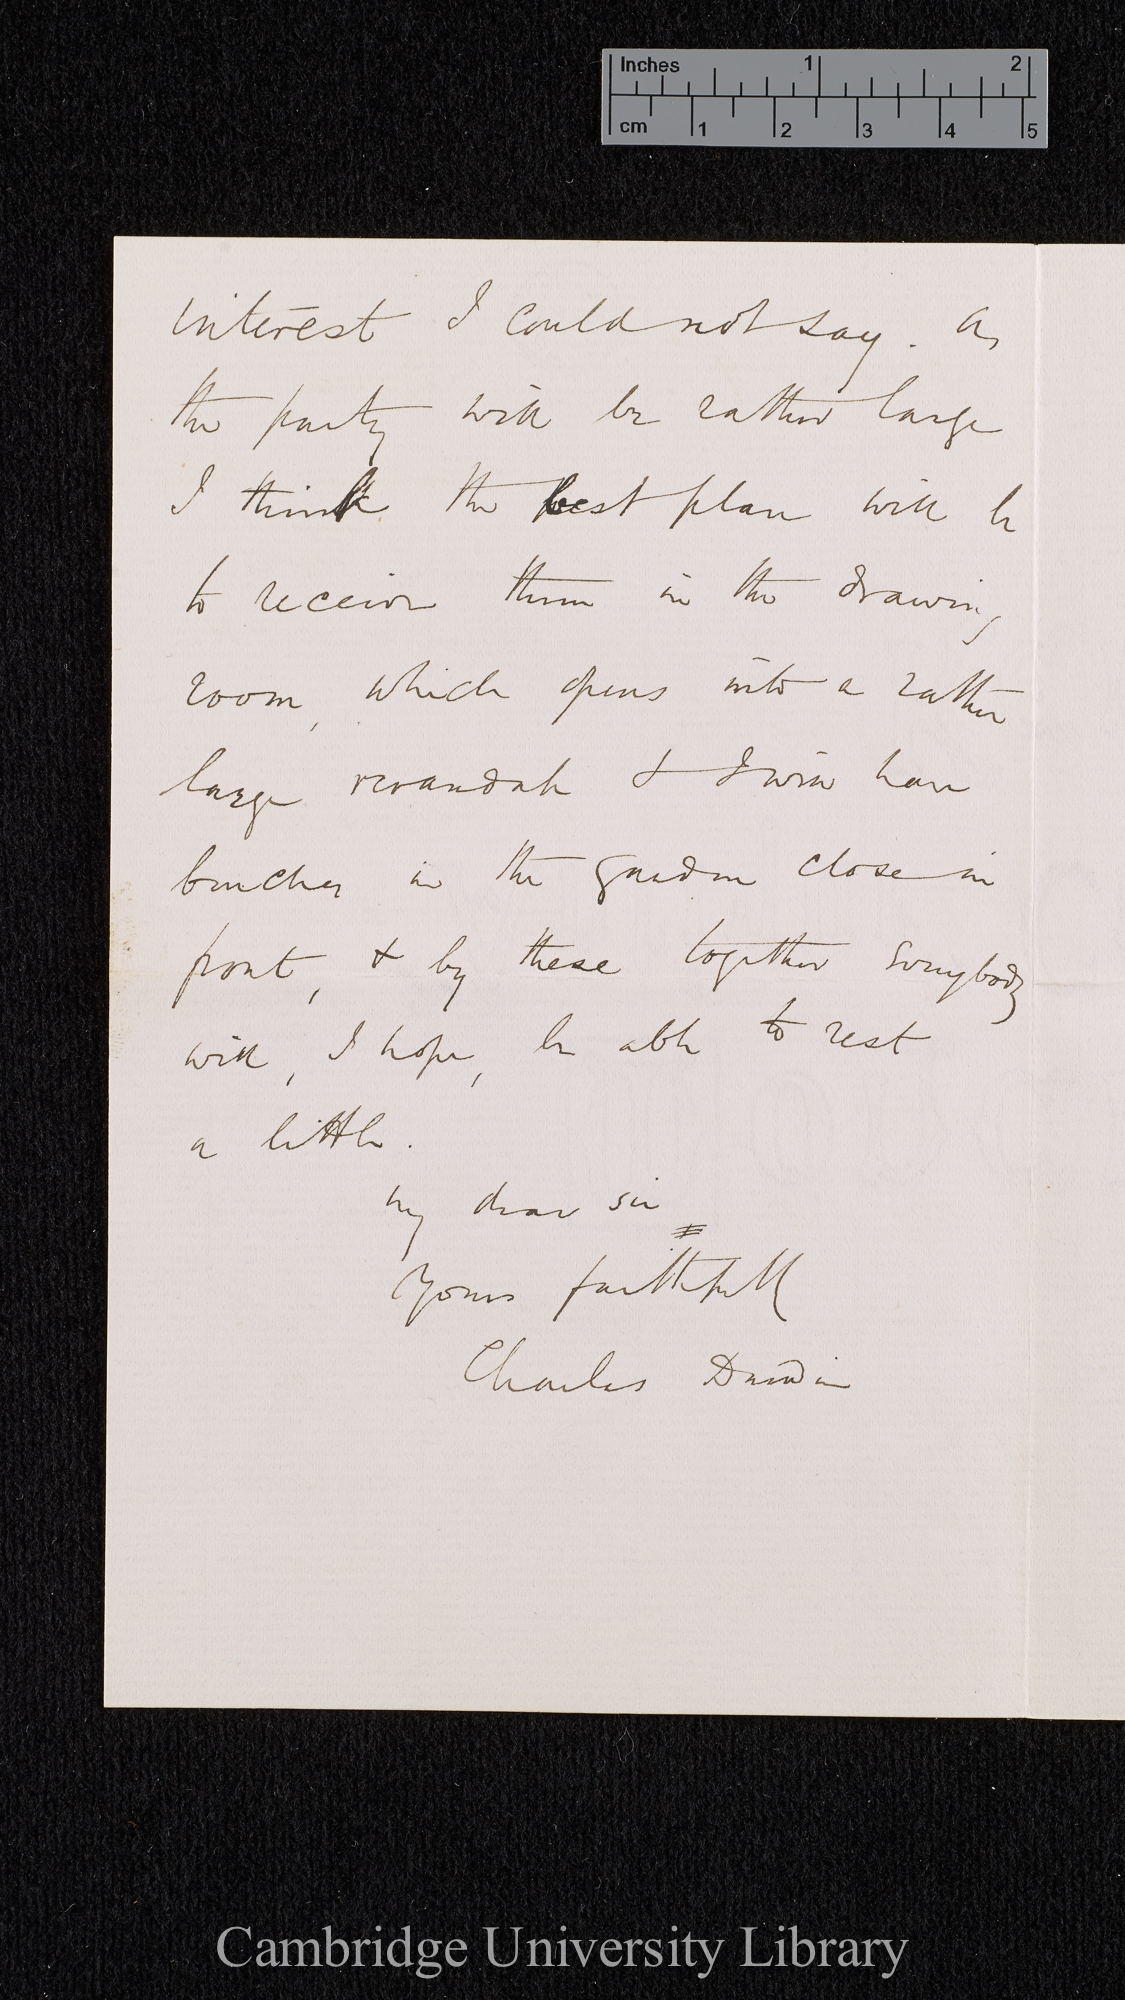 Inches 1 2
cm 1 2 3 4 5
interest I could not say. As
the party will be rather large
I think the best plan will be
to receive them in the drawing
room, which opens into a rather
large verandah & I will have
benches in the garden close in
front, & by these together somebody
will, I hope, be able to rest
a little.
My dear Sir
Yours faithfully
Charles Darwin
Cambridge University Library